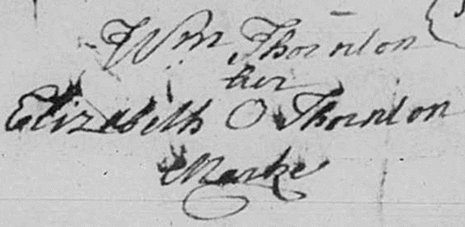 Wm Thornton
her
Elizabeth O Thornton
Marke